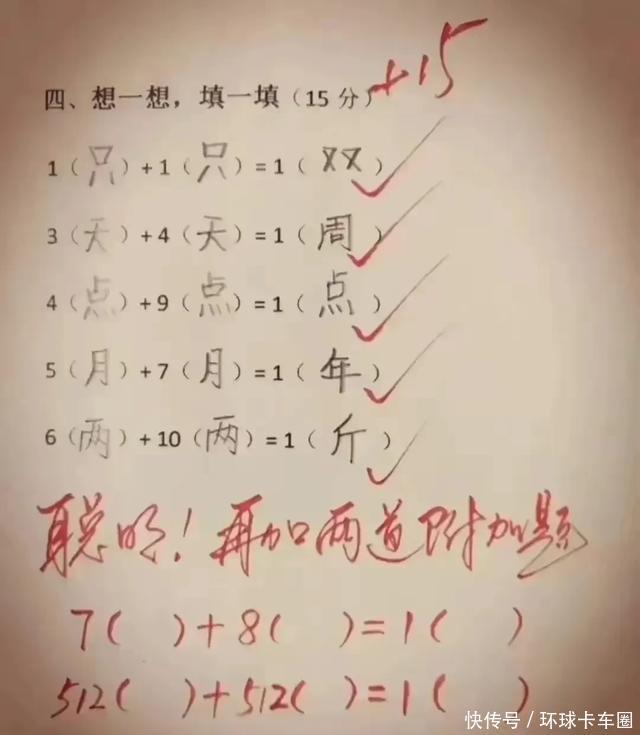 +15
四、想一想，填一填（15分）
1（只）+1（只）=1（双）
3（天）+4（天）=1（周）
4（点）+9（点）=1（点）
5（月）+7（月）=1（年）
6（两）+10（两）=1（斤）
聪明！再加两道附加题
7(  )+8(  )=1(  )
512(  )+512(  )=1(  )
快传号/环球卡车圈